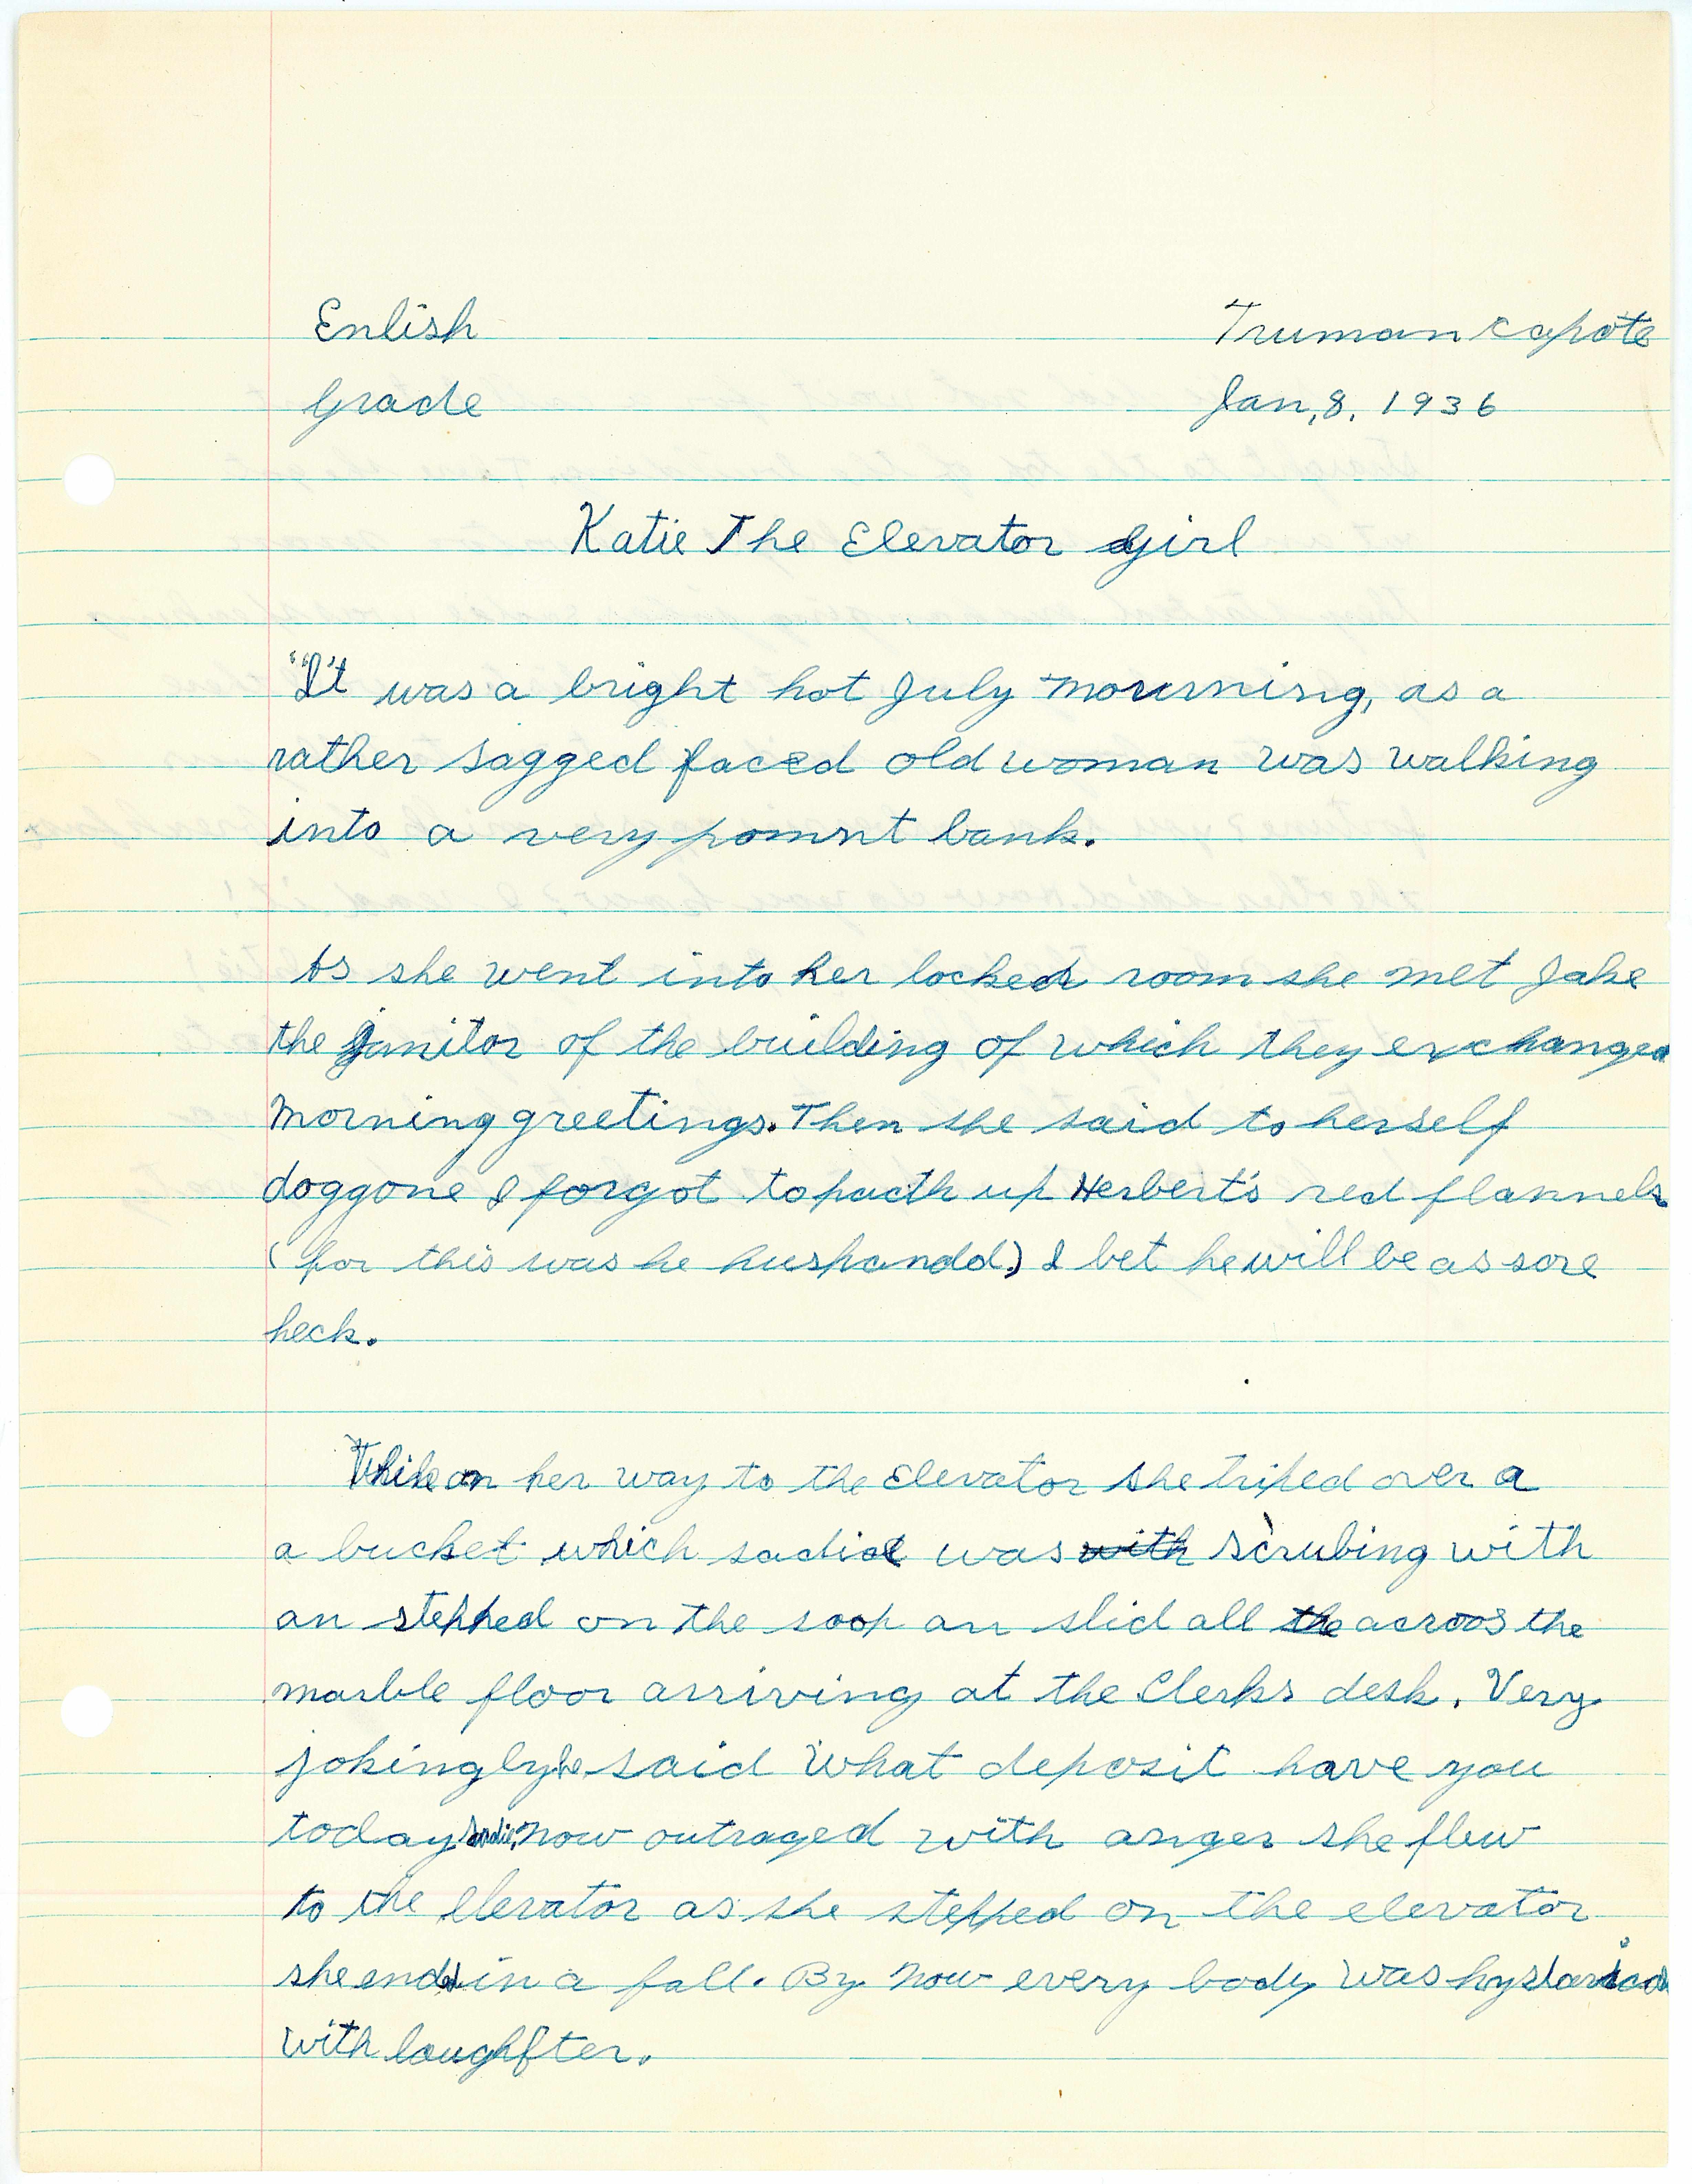 Enlish Truman Capote
Grade Jan, 8, 1936
Katie The Elevator Girl
"It was a bright hot July mourning, as a
rather sagged faced old woman was walking
into a very pomnt bank.
As she went into her locked room she met Jake
the janitor of the building of which they exchanged
morning greetings. Then she said to herself
doggone I forgot to pacth up Herbert's red flannels
(for this was he huspandd) I bet he will be as sore
heck.
While on her way to the Elevator she triped over a
a bucket which sadie was with scrubing with
an stepped on the soop an slid all the acroos the
marble floor arriving at the Clerks desk. Very
jokingly he said What deposit have you
today Sadie, now outraged with anger she flew
to the Elevator as she stepped on the elevator
she ended in a fall. By now every body was
with laughfter.